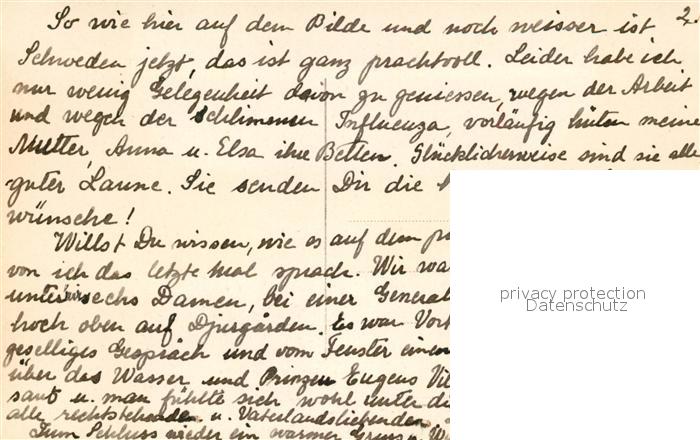 2.
So wie hier auf dem Bilde und noch weisser ist
Schweden jetzt, das ist ganz prachtvoll. Leider habe ich
nur wenig Gelegenheit davon zu geniessen, wegen der Arbeit
und wegen der schlimmen Influenza, vorläufig hüten meine
Mutter, Anna u. Elsa ihre Betten. Glücklicherweise sind sie alle
guter Laune. Sie senden Dir die
wünsche!
Willst Du wissen, wie es auf dem
von ich das letzte Mal sprach. Wir wa
unter sechs Damen, bei einer General
hoch oben auf Djurgården. Es war Vort
geselliges Gespräch und vom Fenster einen
über das Wasser und Prinzen Eugens Vil
sant u. man fühlte sich wohl unter di
alle rechtstehenden u. Vaterlandsliebenden
Zum Schluss wieder ein warmer Gruss u.
privacy protection
Datenschutz